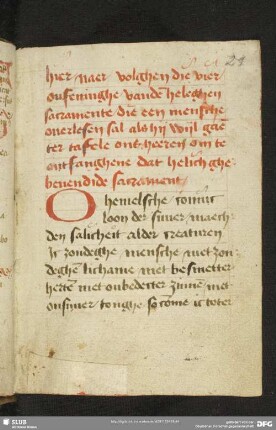 21
hier naer volghen die vier
oufeninghe vandē heleghen
sacramente die een mensche
ouerlesen sal als hij wijl gaē
ter tafele ons heeren om te
ontfanghene dat helich ghe
benendide sacrament
O hemelsche conīc
loon der siuuer maech
den salicheit alder creaturen
Ic zondeghe mensche met zon
deghē lichame met besmetter
hertē met onbedecter zinne met
onsuuer tonghe so comē ic toter
SLUB
DFG